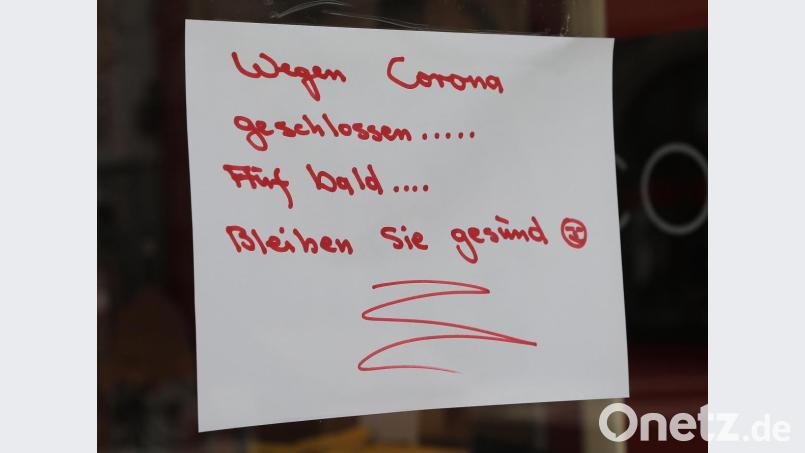 Wegen Corona
geschlossen.....
Auf bald....
Bleiben Sie gesund
CO
Onetz.de